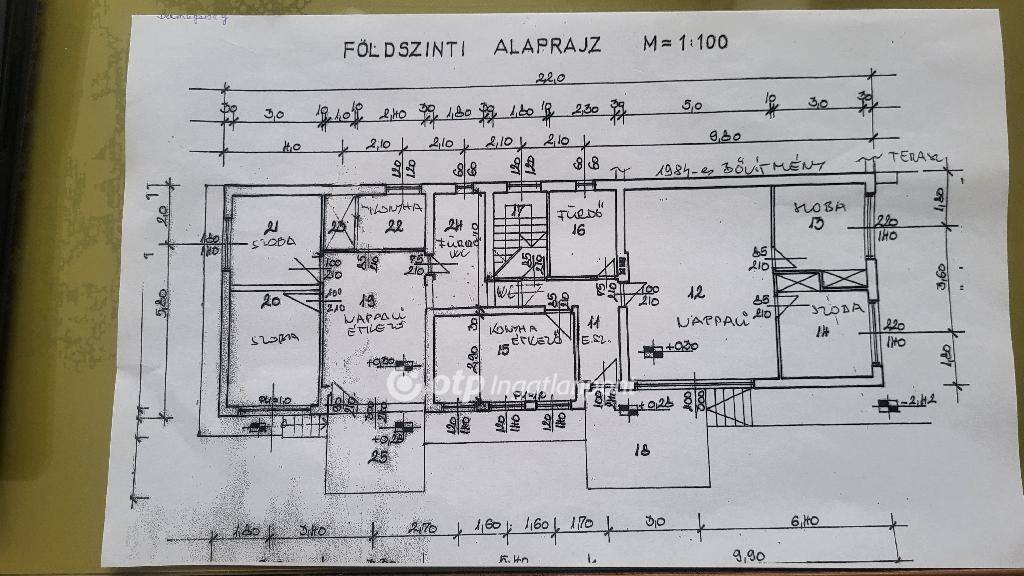 FÖLDSZINTI ALAPRAJZ M=1:100
22,0
30 3,0 10 1,0 10 2,40 30 1,80 30 1,80 10 2,30 30 5,0 10 3,0 30
4,0 2,10 2,10 2,10 2,10 9,80
1984-es BŐVÍTMÉNY
TERASZ
120 120 60 60 120 120 60 60
21 SZOBA
23
KONYHA 22
24 FÜRDŐ WC
17
FÜRDŐ 16
SZOBA 13
220 140
1,80
3,60
1,80
5,80
100 210
85 210
75 210
85 210
75 210
100 210
85 210
85 210
20 SZOBA
19 NAPPALI ÉTKEZŐ
WC
KONYHA ÉTKEZŐ 15
11 ESZ.
12 NAPPALI
SZOBA 14
220 140
+0,20
+0,20
otp Ingatlanpont
120 140 120 140 120 140
100 210
+0,28
-2,42
25
18
1,80 3,40 2,70 1,60 1,60 1,70 3,0 6,40
5,40 9,90